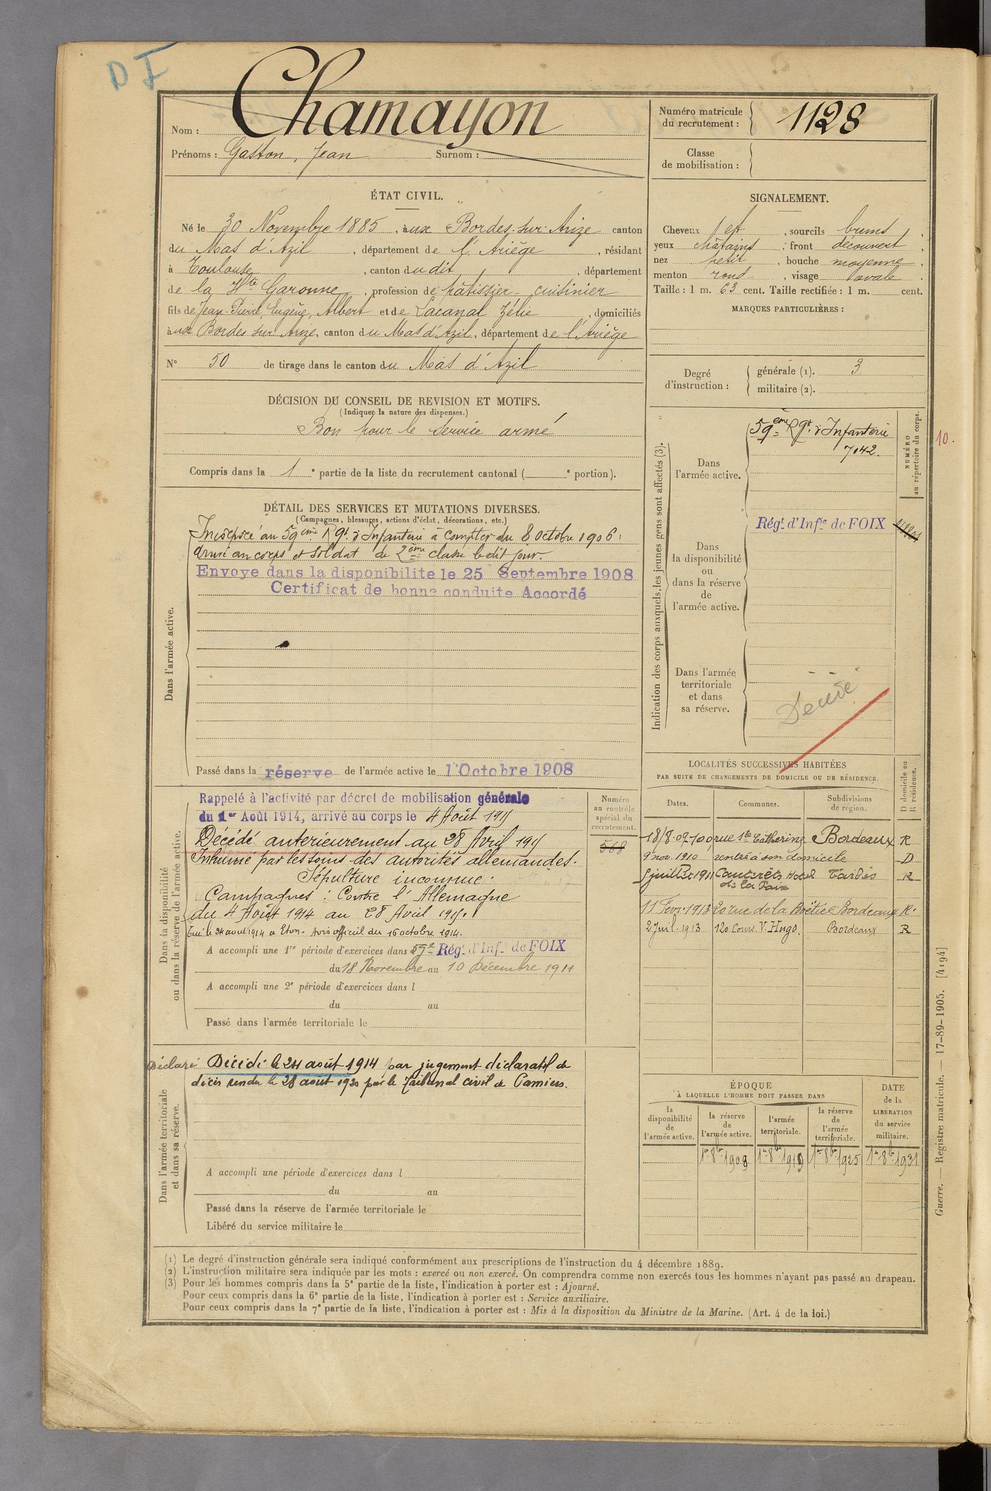 DF
Nom : Chamayou
Prénoms : Gaston, Jean Surnom :
Numéro matricule du recrutement : 1128
Classe de mobilisation :
ÉTAT CIVIL.
Né le 30 Novembre 1885, aux Bordes-sur-Arize canton
du Mas d'Azil, département de l'Ariège, résidant
à Toulouse, canton du dit, département
de la Hte Garonne, profession de pâtissier-cuisinier
fils de Jean-Pierre, Eugène, Albert et de Lacanal Zélie, domiciliés
aux Bordes sur Arize, canton du Mas d'Azil, département de l'Ariège
N° 50 de tirage dans le canton du Mas d'Azil
SIGNALEMENT.
Cheveux, sourcils bruns
yeux châtains, front découvert
nez petit, bouche moyenne
menton rond, visage ovale
Taille : 1 m. 63 cent. Taille rectifiée : 1 m. cent.
MARQUES PARTICULIÈRES :
Degré d'instruction : générale (1). 3
militaire (2).
DÉCISION DU CONSEIL DE REVISION ET MOTIFS.
(Indiquer la nature des dispenses.)
Bon pour le service armé
Compris dans la 1e partie de la liste du recrutement cantonal ( e portion).
DÉTAIL DES SERVICES ET MUTATIONS DIVERSES.
(Campagnes, blessures, actions d'éclat, décorations, etc.)
Dans l'armée active.
Incorporé au 59ème Rgt d'Infanterie à compter du 8 octobre 1906.
Arrivé au corps et soldat de 2ème classe le dit jour.
Envoye dans la disponibilite le 25 Septembre 1908
Certificat de bonne conduite Accordé
Passé dans la réserve de l'armée active le 1 Octobre 1908
Indication des corps auxquels les jeunes gens sont affectés (3).
NUMÉRO au répertoire du corps.
Dans l'armée active.
59ème Rgt d'Infanterie
7042.
10.
Dans la disponibilité ou dans la réserve de l'armée active.
Régt d'Infie de FOIX
Dans l'armée territoriale et dans sa réserve.
Décédé
Dans la disponibilité ou dans la réserve de l'armée active.
Numéro au contrôle spécial du recrutement.
568
Rappelé à l'activité par décret de mobilisation générale
du 1er Août 1914, arrivé au corps le 4 Août 191
Décédé antérieurement au 28 Avril 191
Inhumé par les soins des autorités allemandes.
Sépulture inconnue.
Campagnes : Contre l'Allemagne
du 4 Août 1914 au 28 Avril 191
Tué le 24 août 1914 à Avis officiel du 16 octobre 1914.
A accompli une 1re période d'exercices dans 59e Régt d'Inf. de FOIX
du 18 Novembre au 10 Décembre 1911
A accompli une 2e période d'exercices dans l
du au
Passé dans l'armée territoriale le
LOCALITÉS SUCCESSIVES HABITÉES
PAR SUITE DE CHANGEMENTS DE DOMICILE OU DE RÉSIDENCE.
Dates. Communes. Subdivisions de région. D domicile ou R résidence.
rue Ste Catherine Bordeaux R
9 nov. 1910 rentré à son domicile D
5 juillet 1911 Cauterets Hôtel de la Paix Tarbes R
11 Févr. 1913 20 rue de la Boëtie Bordeaux R.
2 Juil. 1913 120 Cours V. Hugo. Bordeaux R
Dans l'armée territoriale et dans sa réserve.
Déclaré Décédé le 24 août 1914 par jugement déclaratif de
décès rendu le 28 août 1920 par le Tribunal civil de Pamiers.
A accompli une période d'exercices dans l
du au
Passé dans la réserve de l'armée territoriale le
Libéré du service militaire le
ÉPOQUE
À LAQUELLE L'HOMME DOIT PASSER DANS
DATE de la LIBÉRATION du service militaire.
la disponibilité de l'armée active. la réserve de l'armée active. l'armée territoriale. la réserve de l'armée territoriale.
1er 8bre 1908 1er 8bre 1919 1er 8bre 1925 1er 8bre 1931
Guerre. — Registre matricule. — 17-89-1905. [4194]
(1) Le degré d'instruction générale sera indiqué conformément aux prescriptions de l'instruction du 4 décembre 1889.
(2) L'instruction militaire sera indiquée par les mots : exercé ou non exercé. On comprendra comme non exercés tous les hommes n'ayant pas passé au drapeau.
(3) Pour les hommes compris dans la 5e partie de la liste, l'indication à porter est : Ajourné.
Pour ceux compris dans la 6e partie de la liste, l'indication à porter est : Service auxiliaire.
Pour ceux compris dans la 7e partie de la liste, l'indication à porter est : Mis à la disposition du Ministre de la Marine. (Art. 4 de la loi.)